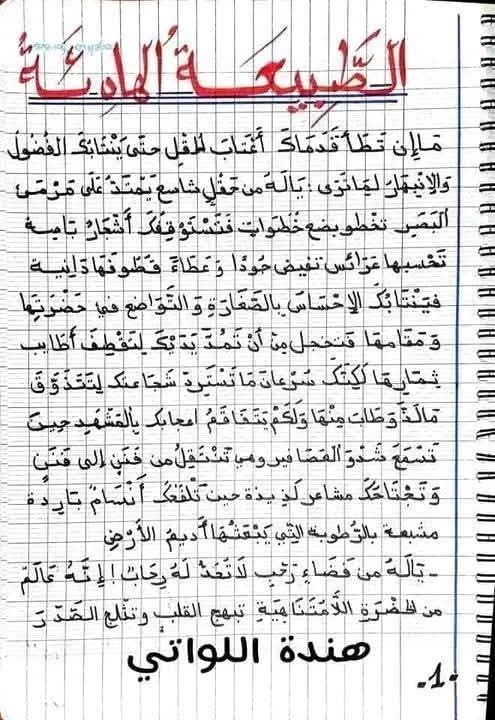 الطَّبِيعَةُ الهَادِئَةُ
مَا إِن تَطَأُ قَدَمَاكَ أَعْتَابَ الحقْلِ حتَّى يَنْتَابَكَ الفُضُولُ
وَالِانْبِهَارُ لِمَا تَرَى : يَالَهُ مِن حَقْلٍ شاسِعٍ يَمْتَدُّ عَلَى مَرْمَى
البَصَرِ تخطو بِضْعَ خُطُوَاتٍ فَتَسْتَوْقِفُكَ أَشْجَارٌ بَاسِقة
تَحْسِبها عَرَائِسَ تفيض جُودًا وَعَطَاءً قطُوفهَا دَانِية
فيَنْتَابُكَ الإِحْسَاسُ بالصَّغَارَةِ وَالتَّوَاضعِ في حَضْرَتِها
وَمَقَامِها فَتخجلُ مِنْ أَنْ تَمُدَّ يَدَيْكَ لِتَقْطِفَ أطَايِبَ
ثِمَارِهَا لَكِنَّكَ سَرْعَانَ مَا تَسْتَرِدُّ شَجَاعتكَ لِتَتَذَوَّقَ
مَالَذَّ وَطَابَ مِنْهَا وَلَكَمْ يَتَفَاقَمُ اعجابك بِالمَشْهَدِ حِينَ
تَسْمَعُ شَدْوَ العَصَافِيرِ وهي تَنْتَقِلُ مِن فَنَنٍ إلى فَنَنٍ
وَتَجْتَاحُكَ مشاعر لَذِيذة حينَ تَلْفَحُكَ أَنْسَامٌ بَارِدة
مشبعة بالرُّطُوبةِ التِي يَبْعَثُهَا أَدِيمُ الأَرْضِ
- يَالَهُ مِن فَضَاءٍ رَحْبٍ لَا تُعَدُّ لَهُ رِحَابٌ ! إِنَّهُ عَالَمٌ
مِن الخضْرَةِ اللَّامُتَنَاهِيَةِ تبهج القلب وتثلج الصَّدْرَ
هندة اللواتي
-1-